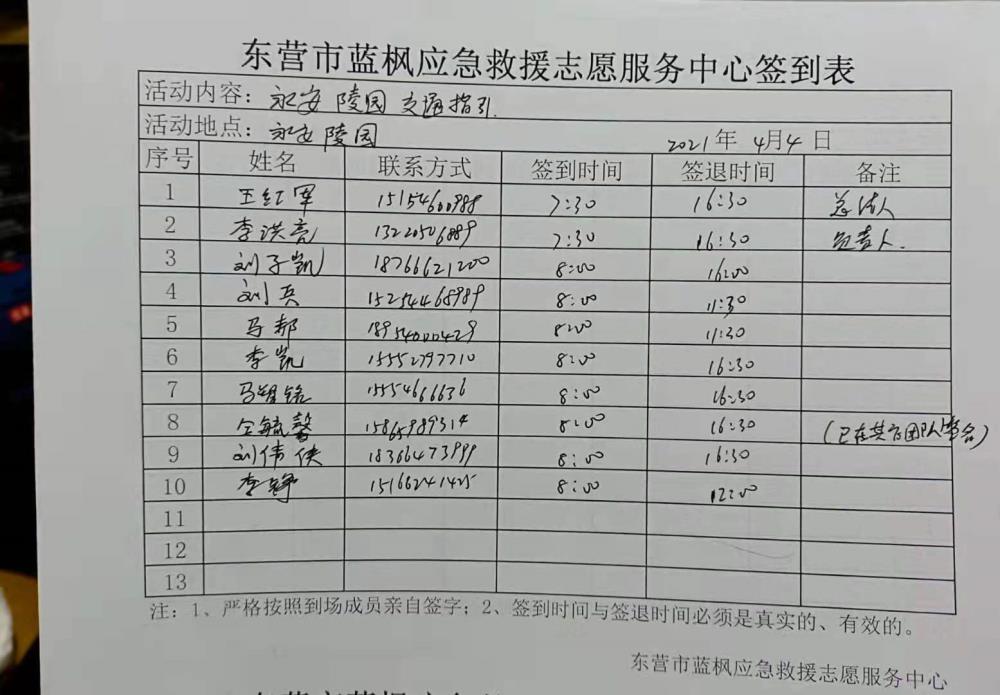 东营市蓝枫应急救援志愿服务中心签到表
活动内容：永安陵园交通指引.
活动地点：永安陵园 2021年4月4日
序号 姓名 联系方式 签到时间 签退时间 备注
1 王红军 15154600988 7:30 16:30
2 李洪亮 13220506889 7:30 16:30 负责人.
3 刘子凯 18766621200 8:00 16:00
4 刘兵 15254468989 8:00 11:30
5 马邦 18954000429 8:00 11:30
6 李凯 15552797710 8:00 16:30
7 15554666636 8:00 16:30
8 仝毓馨 15865989314 8:00 16:30 (已在其它团队签名)
9 刘伟侠 18366473999 8:00 16:30
10 李铮 15166241425 8:00 12:00
11
12
13
注：1、严格按照到场成员亲自签字；2、签到时间与签退时间必须是真实的、有效的。
东营市蓝枫应急救援志愿服务中心